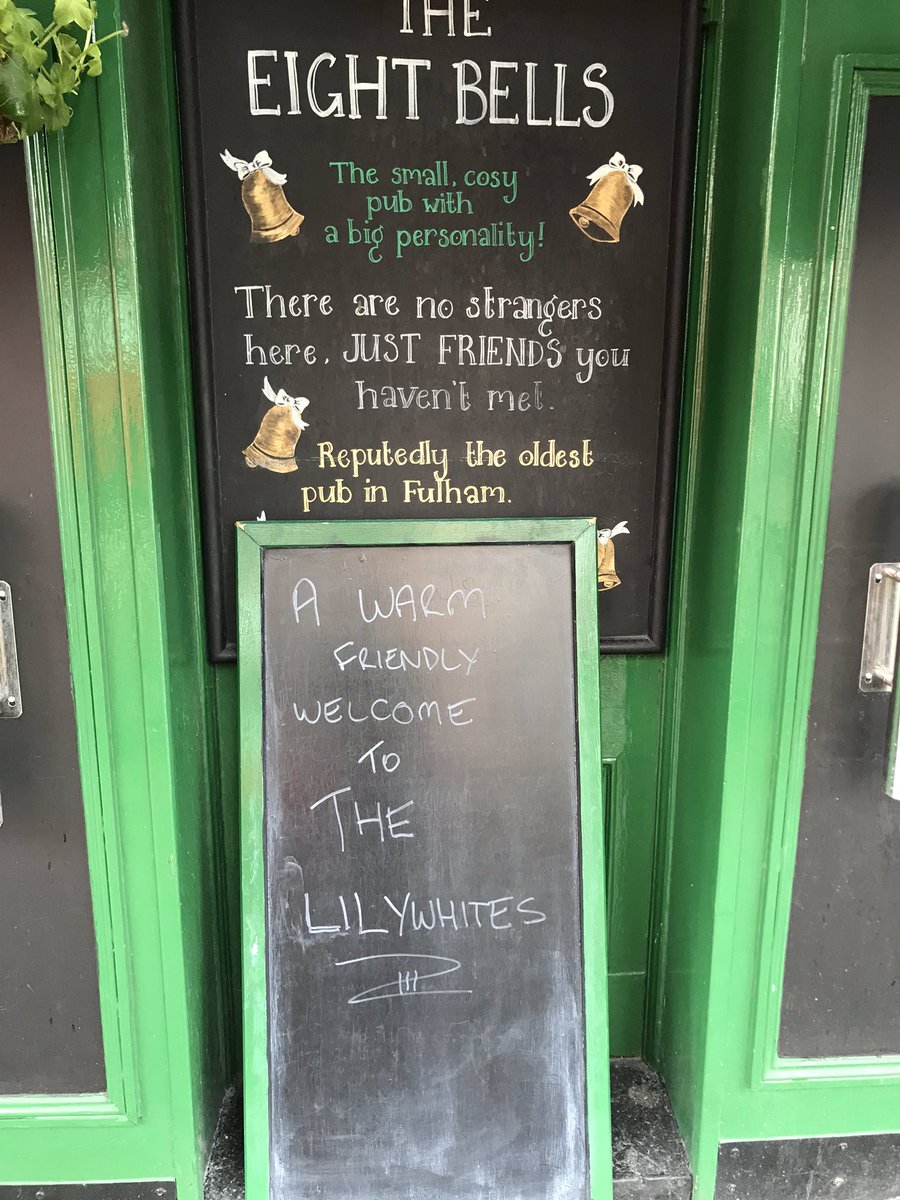 THE
EIGHT BELLS
The small, cosy
pub with
a big personality!
There are no strangers
here, JUST FRIENDS you
haven't met.
Reputedly the oldest
pub in Fulham.
A WARM
FRIENDLY
WELCOME
TO
THE
LILYWHITES